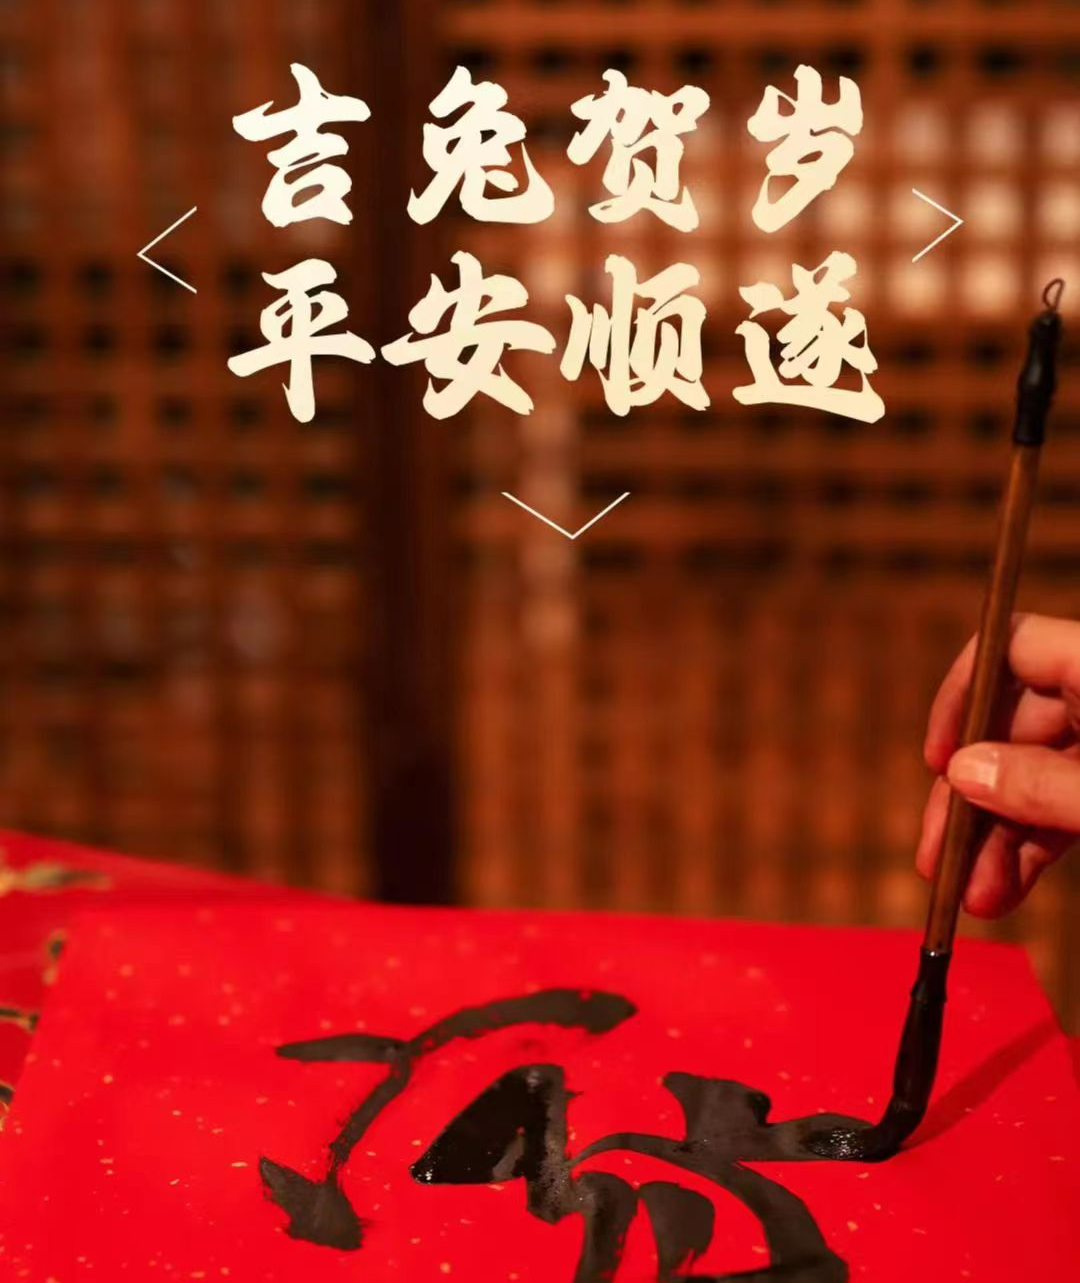 吉兔贺岁
平安顺遂